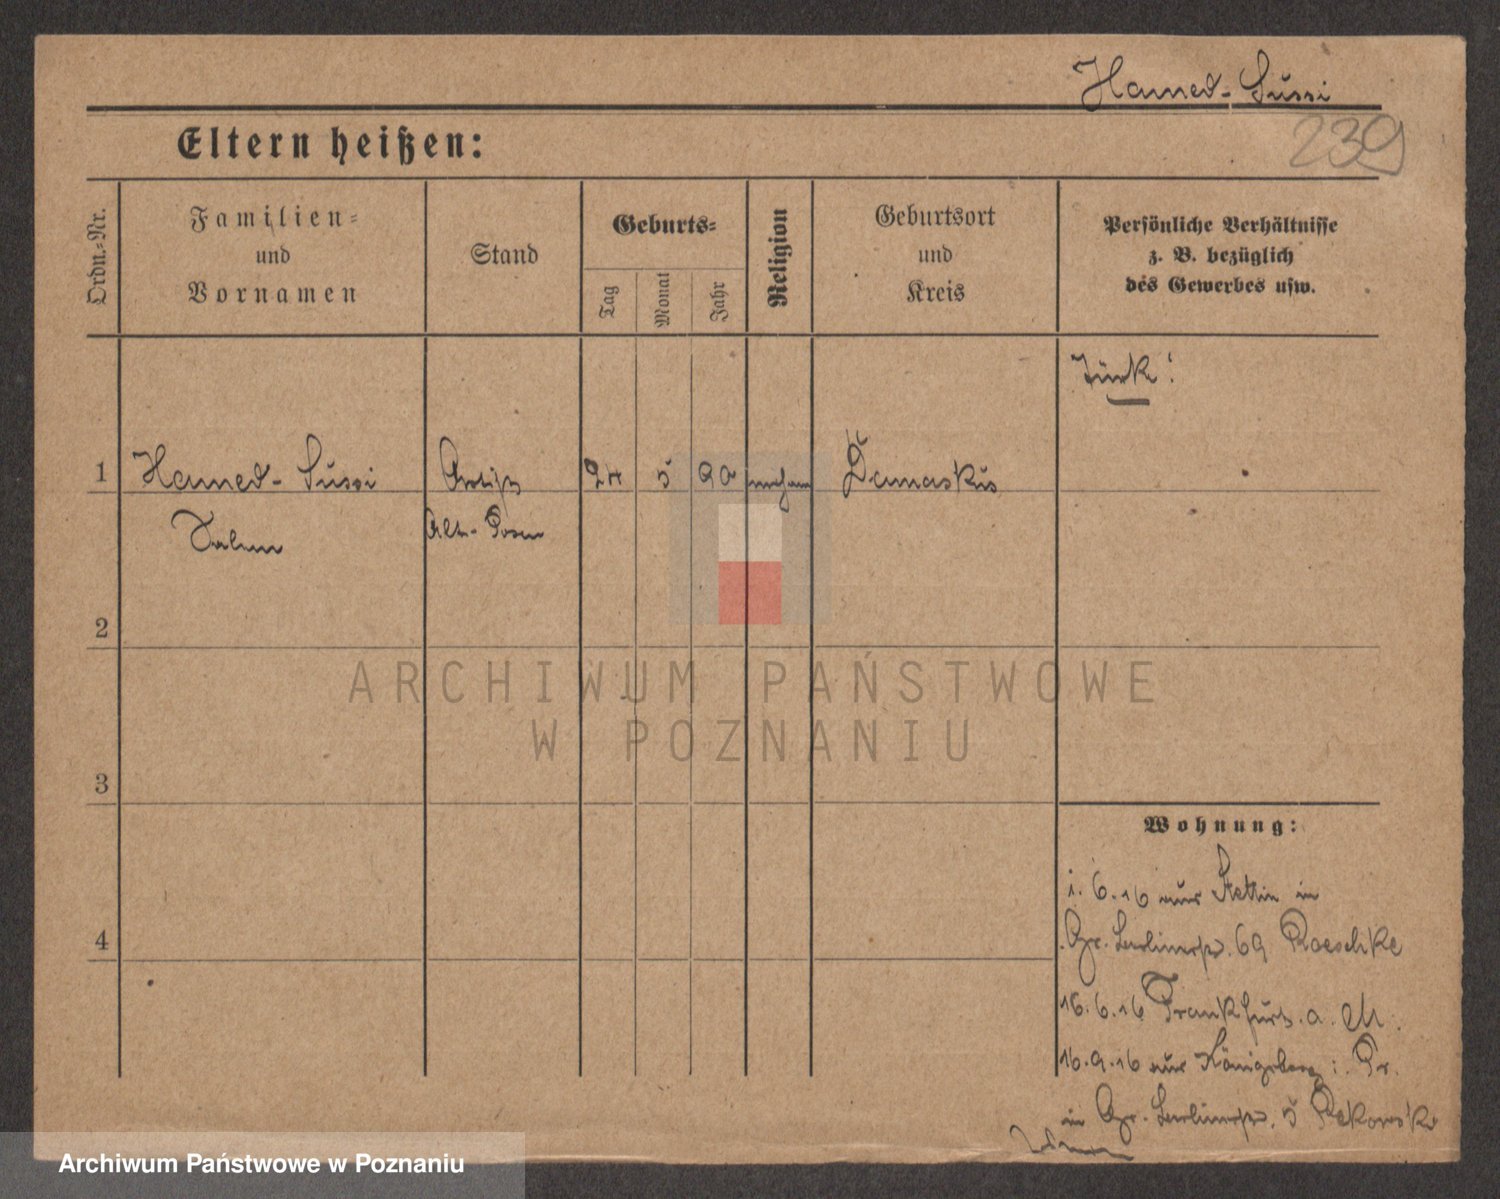 Hamed-Sussi
239
Eltern heißen:
Ordn.-Nr.
Familien-
und
Vornamen
Stand
Geburts-
Tag
Monat
Jahr
Religion
Geburtsort
und
Kreis
Persönliche Verhältnisse
z. B. bezüglich
des Gewerbes usw.
Türke!
1 Hamed-Sussi Artist 24 5 90 moham Damaskus
Alt-Posen
2
ARCHIWUM PAŃSTWOWE
W POZNANIU
3
Wohnung:
1. 6. 16 aus Stettin in
4
Gr. Berlinerstr. 69 Roeschke
16. 6. 16 Frankfurt a. M.
16. 9. 16 aus Königsberg i. Pr.
in Gr. Berlinerstr. 5 Rekowski
Archiwum Państwowe w Poznaniu